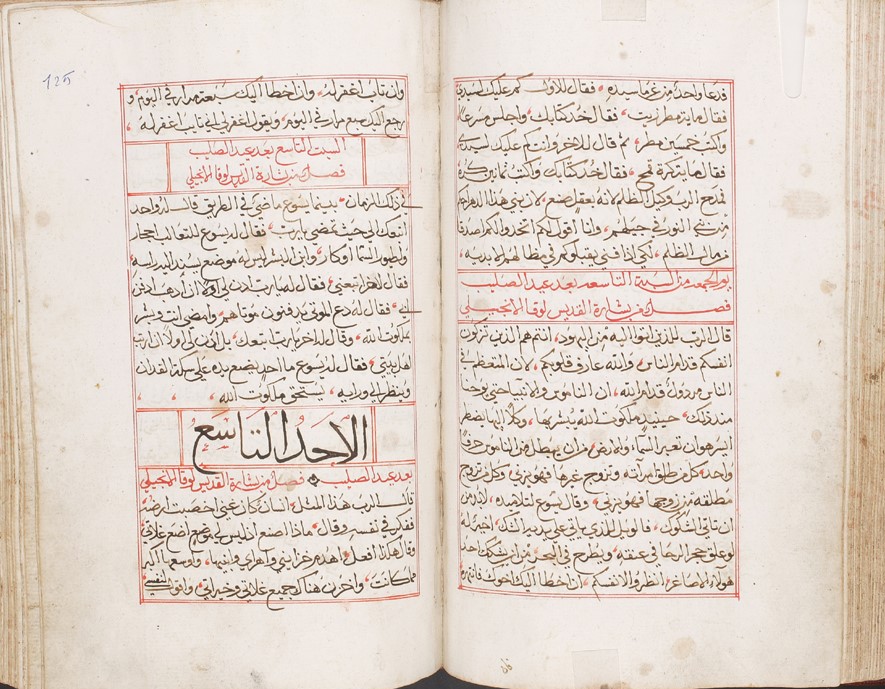 فدعا واحد من غرما سيده، فقال للاول كم عليك لسيدي
فقال ماية مطر زيت، فقال خد كتابك، واجلس مسرعا
واكتب خمسين مطر، ثم قال للاخر وانت كم عليك لسيدي
فقال ماية كرة قمح، فقال خد كتابك واكتب تمانين كرة
فمدح الرب وكيل الظلم لانه بعقل صنع، لان بني هذا الدهر احكم
من بني النور في جيلهم، وانا اقول لكم اتخدوا لكم اصدقا
من مال الظلم، لكي اذا فني يقبلوكم في مظالهم الابديه،
يوم الجمعه من السبة التاسعه بعد عيد الصليب
فصل من بشارة القديس لوقا الانجيلي
قال الرب للذين اتوا اليه من اليهود، انتم هم الذين تزكون
انفسكم قدام الناس، والله عارف قلوبكم، لان المتعظم في
الناس مردول قدام الله، ان الناموس والانبيا حتى يوحنا
مند ذلك حينيد ملكوت الله يبشر بها، وكلا اليها يضطر
ايسر هو ان تعبر السما والارض من ان يبطل من الناموس حرف
واحد، كل من طلق امرآته وتزوج غيرها فهو يزني، وكل من تزوج
مطلقه من زوجها فهو يزني، وقال يسوع لتلاميده، لابد من
ان تاتي الشكوك، فالويل للذي ياتي على يديه الشك، اخير له
لو علق حجر الرحا في عنقه، ويطرح في البحر، من ان يشكك احد
هولاء الاصاغر، انظروا لانفسكم، ان اخطا اليك اخوك فانتهره
فان
125
وان تاب اغفر له، وان اخطا اليك سبعة مرار في اليوم، و
رجع اليك سبع مرار في اليوم، ويقول اغفر لي اني تايب اغفر له،
السبت التاسع بعد عيد الصليب
فصل من بشارة القديس لوقا الانجيلي
في ذلك الزمان، بينما يسوع ماضي في الطريق قال له واحد
اتبعك الى حيث تمضي يا رب، فقال له يسوع للتعالب احجار
ولطيور السما اوكار، وابن البشر ليس له موضع يسند اليه راسه،
فقال لاهر اتبعني، فقال له يا رب ادن لي اولا ان ادهب ادفن
ابي، فقال له دع الموتى يدفنون موتاهم، وامضي انت وبشر
بملكوت الله، وقال له اخر يا رب اتبعك، بل ادن لي اولا ان ارتب
اهل بيتي، فقال له يسوع ما احد يضع يده على سكة الفدان
وينظر الى ورايه، يستحق ملكوت الله،
الاحد التاسع
بعد عيد الصليب فصل من بشارة القديس لوقا الانجيلي
قال الرب هذا المثل، انسان كان غني اخصبت ارضه
ففكر في نفسه وقال، ماذا اصنع اذ ليس لي موضع اضع غلاتي
وقال هكذا افعل، اهدم خزايني واهراي وابنيها، واوسعها اكبر
مما كانت، واخزن هناك جميع غلاتي وخيراتي، واقول لنفسي